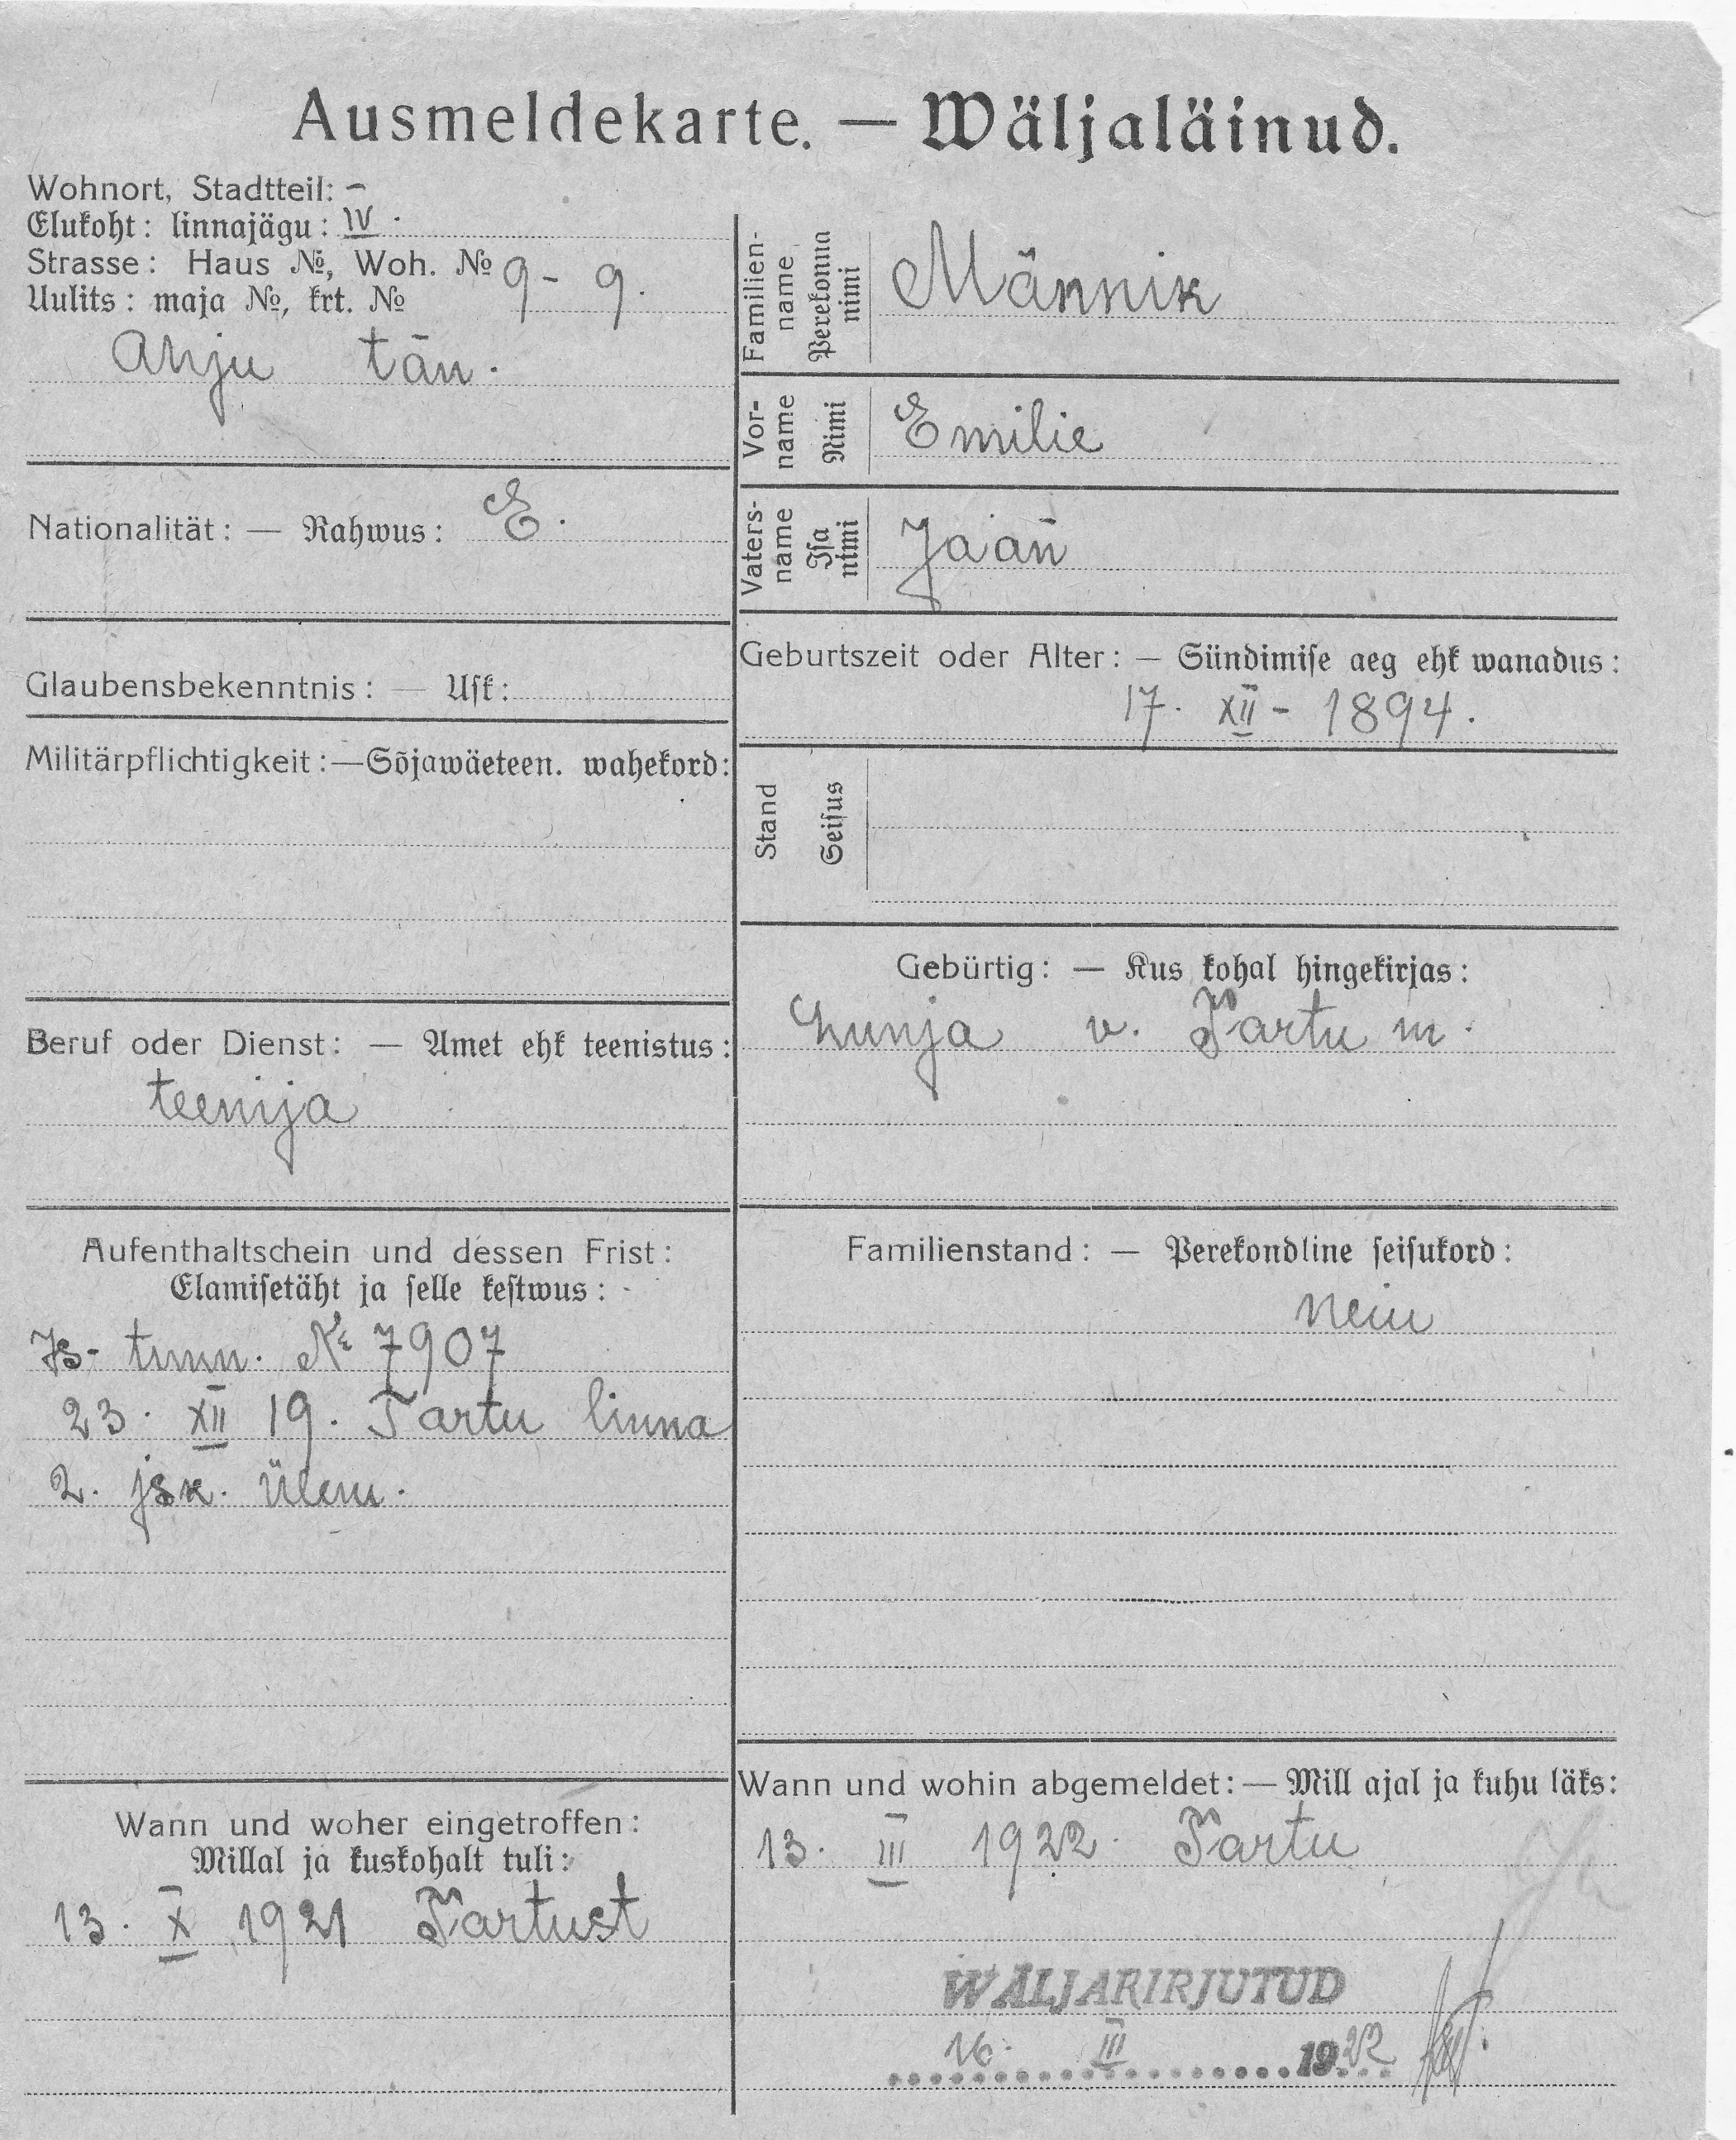 Ausmeldekarte. — Wäljaläinud.
Wohnort, Stadtteil: –
Elukoht: linnajägu: IV.
Strasse: Haus №, Woh. №
Uulits: maja №, krt. №
9 - 9.
Anju tän.
Nationalität: — Rahwus: E.
Glaubensbekenntnis: — Usk:
Militärpflichtigkeit: — Sõjawäeteen. wahekord:
Beruf oder Dienst: — Amet ehk teenistus:
teenija
Aufenthaltschein und dessen Frist:
Elamisetäht ja selle kestwus:
Is- tunn. № 7907
23. XII 19. Tartu linna
2. jsk. ülem.
Wann und woher eingetroffen:
Millal ja kuskohalt tuli:
13. X 1921 Tartust
Familien-
name
Perekonna
nimi
Männik
Vor-
name
Nimi
Emilie
Vaters-
name
Isa
nimi
Jaan
Geburtszeit oder Alter: — Sündimise aeg ehk wanadus:
17. XII - 1894.
Stand
Seisus
Gebürtig: — Kus kohal hingekirjas:
Lunja v. Tartu m.
Familienstand: — Perekondline seisukord:
neiu
Wann und wohin abgemeldet: — Mill ajal ja kuhu läks:
13. III 1922. Tartu
WÄLJAKIRJUTUD
16. III 1922